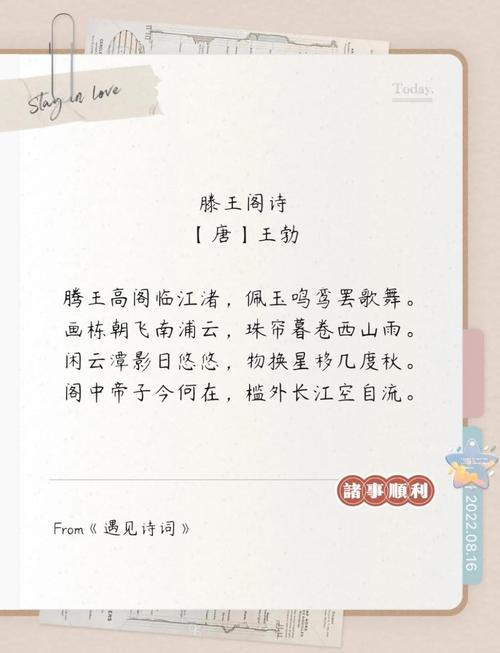 Stay in love
Today.
滕王阁诗
【唐】王勃
腾王高阁临江渚，佩玉鸣鸾罢歌舞。
画栋朝飞南浦云，珠帘暮卷西山雨。
闲云潭影日悠悠，物换星移几度秋。
阁中帝子今何在，槛外长江空自流。
諸事順利
From《遇见诗词》
2022.08.16